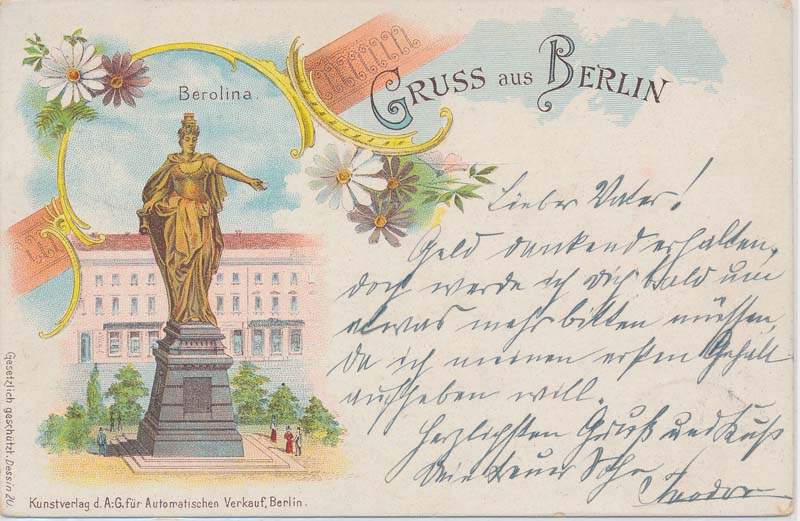 GRUSS aus BERLIN
Berolina.
Lieber Vater!
Geld dankend erhalten,
doch werde ich Dich bald um
etwas mehr bitten müssen,
da ich meinen ersten Gehalt
aufheben will.
Herzlichsten Gruß und Kuß
Dein treuer Sohn
Theodor
Gesetzlich geschützt. Dessin 20.
Kunstverlag d. A:G. für Automatischen Verkauf, Berlin.